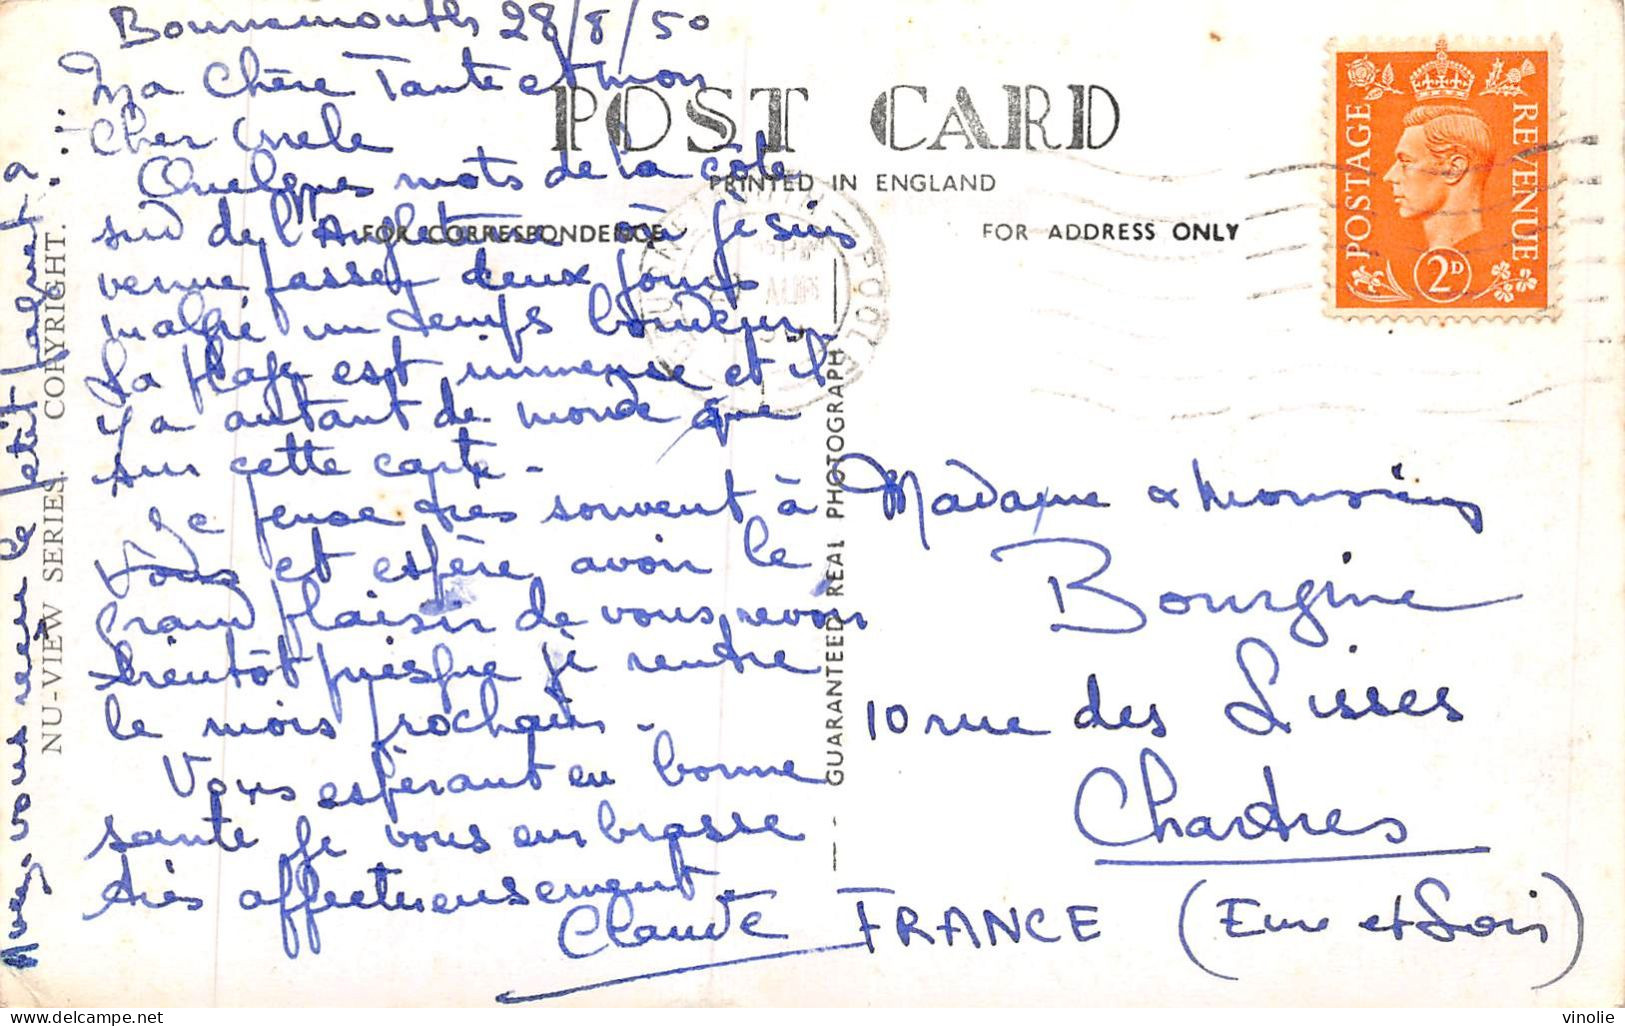 Bournemouth 28/8/50
Ma Chère Tante et mon
cher oncle
Quelques mots de la côte
sud de l'Angleterre où je suis
venue passer deux jours
malgré un temps
La plage est immense et il
y a autant de monde que
sur cette carte -
Je pense très souvent à
vous et espère avoir le
grand plaisir de vous revoir
bientôt puisque je rentre
le mois prochain -
Vous espérant en bonne
santé je vous embrasse
très affectueusement.
Claude
Avez-vous reçu le petit paquet ?
NU-VIEW SERIES. COPYRIGHT.
POST CARD
PRINTED IN ENGLAND
FOR CORRESPONDENCE
FOR ADDRESS ONLY
GUARANTEED REAL PHOTOGRAPH
POSTAGE
REVENUE
2D
Madame & Monsieur
Bourgine
10 rue des Lisses
Chartres
FRANCE (Eure et Loir)
vinolie